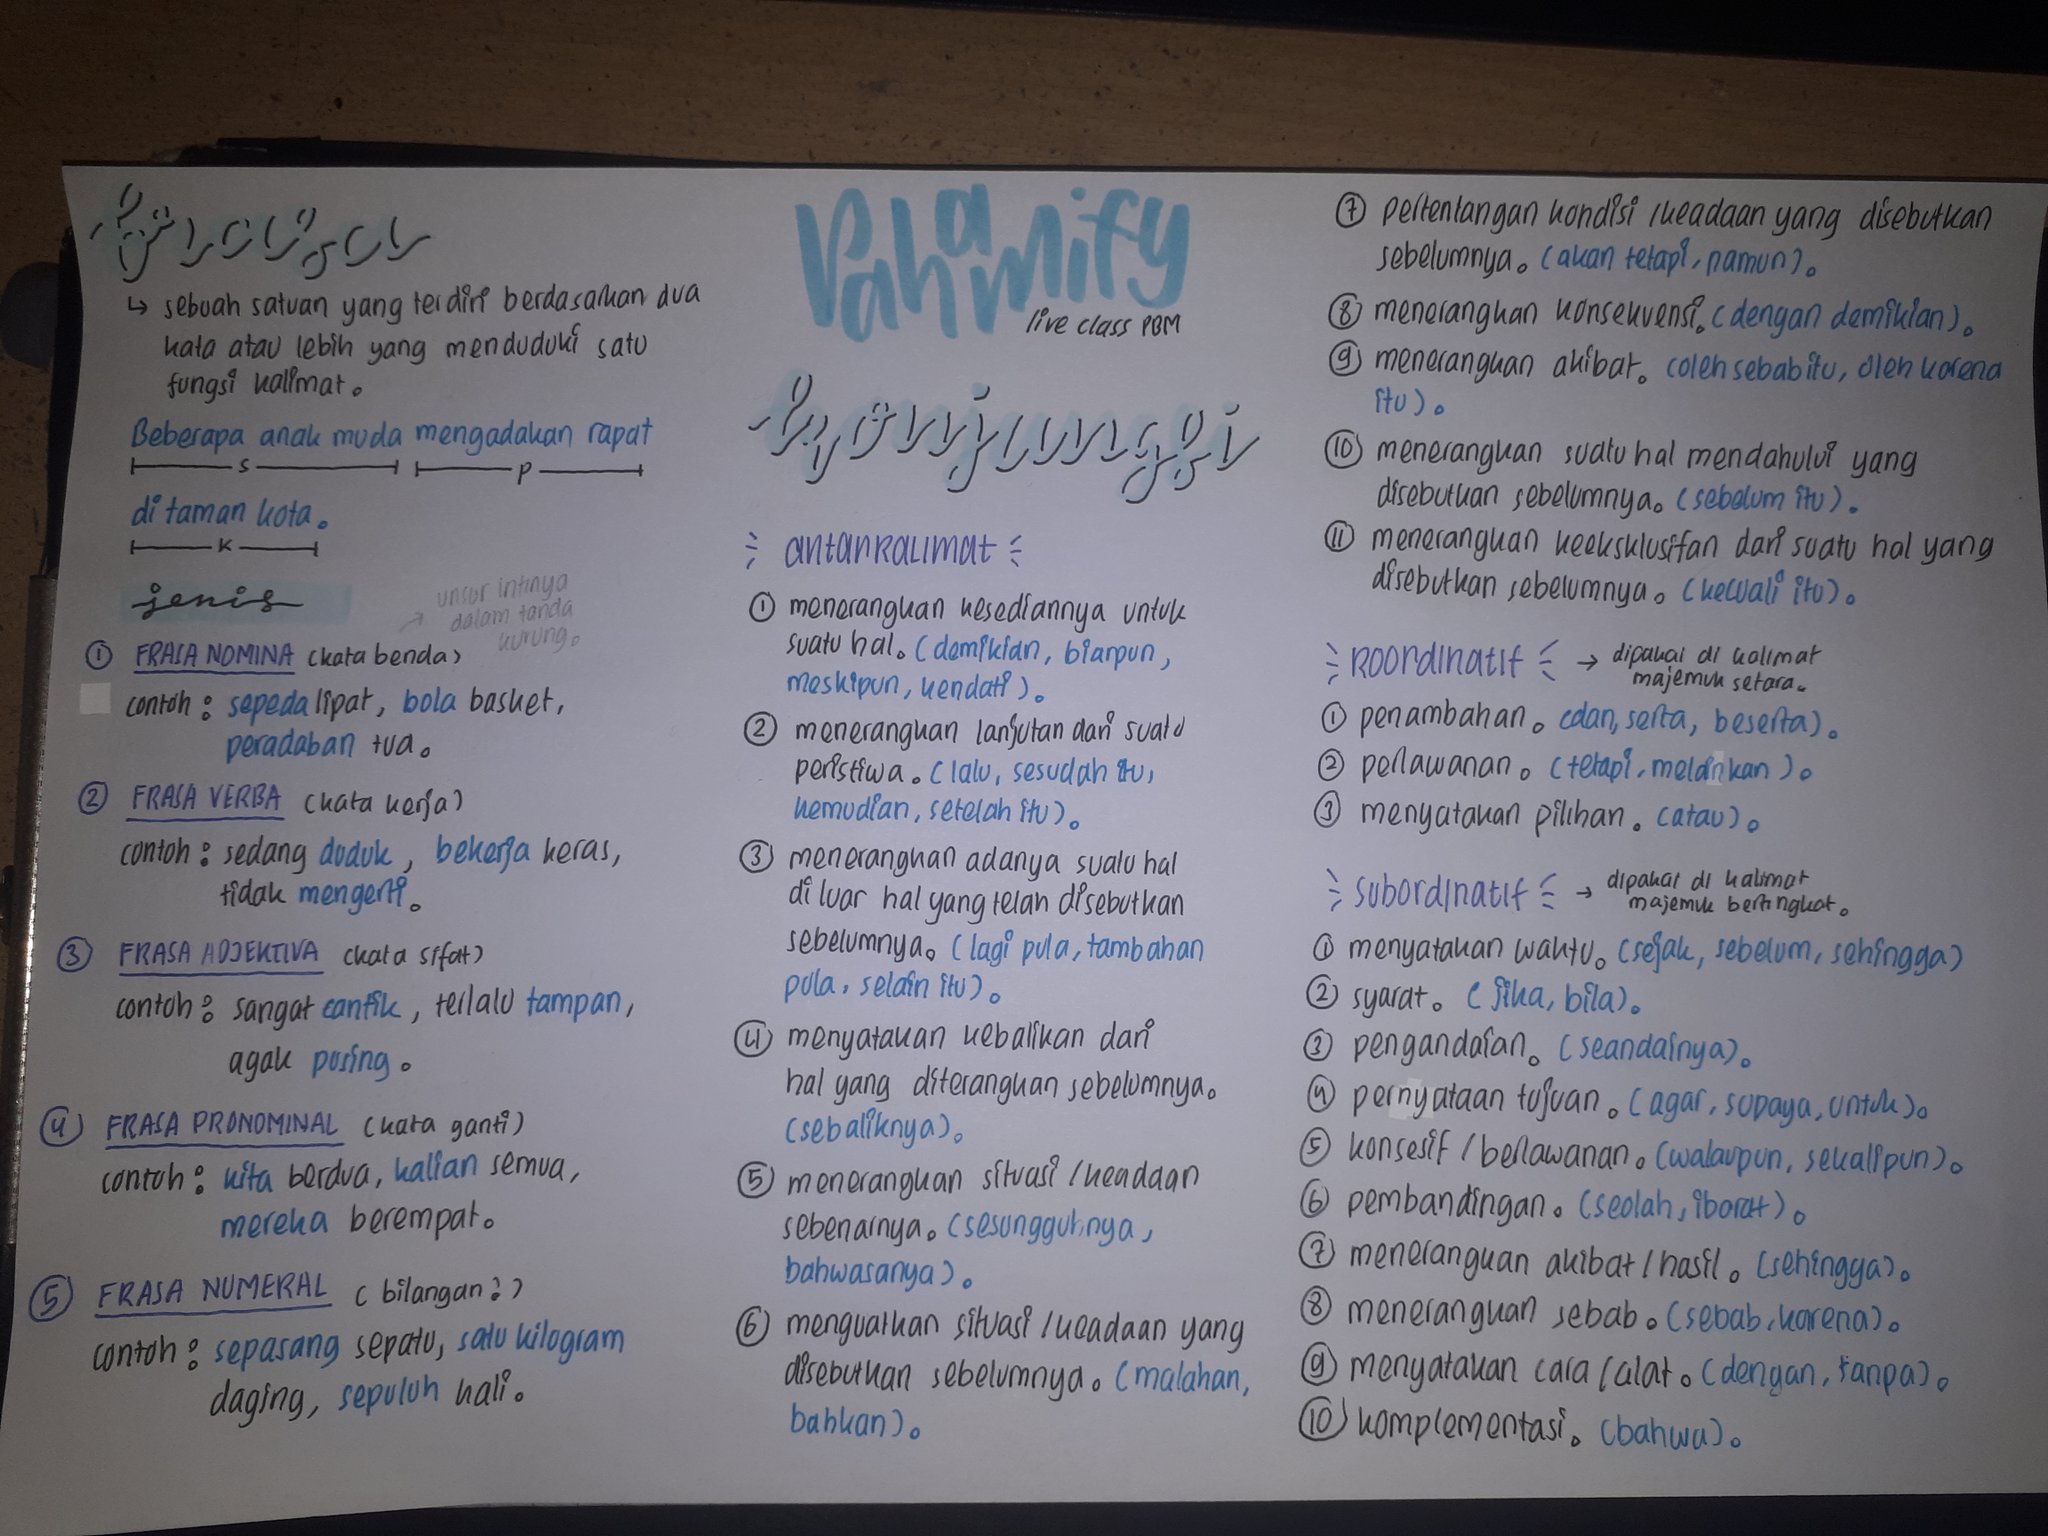 frasa
↳ sebuah satuan yang terdiri berdasarkan dua
kata atau lebih yang menduduki satu
fungsi kalimat.
Beberapa anak muda mengadakan rapat
S P
di taman kota.
K
jenis
→ unsur intinya
dalam tanda
kurung.
① FRASA NOMINA (kata benda)
contoh : sepeda lipat, bola basket,
peradaban tua.
② FRASA VERBA (kata kerja)
contoh : sedang duduk, bekerja keras,
tidak mengerti.
③ FRASA ADJEKTIVA (kata sifat)
contoh : sangat cantik, terlalu tampan,
agak pusing.
④ FRASA PRONOMINAL (kata ganti)
contoh : kita berdua, kalian semua,
mereka berempat.
⑤ FRASA NUMERAL (bilangan:)
contoh : sepasang sepatu, satu kilogram
daging, sepuluh kali.
Pahamify
live class PBM
konjungsi
antarkalimat
① menerangkan kesediannya untuk
suatu hal. (demikian, biarpun,
meskipun, kendati).
② menerangkan lanjutan dari suatu
peristiwa. (lalu, sesudah itu,
kemudian, setelah itu).
③ menerangkan adanya suatu hal
di luar hal yang telah disebutkan
sebelumnya. (lagi pula, tambahan
pula, selain itu).
④ menyatakan kebalikan dari
hal yang diterangkan sebelumnya.
(sebaliknya).
⑤ menerangkan situasi / keadaan
sebenarnya. (sesungguhnya,
bahwasanya).
⑥ menguatkan situasi / keadaan yang
disebutkan sebelumnya. (malahan,
bahkan).
⑦ pertentangan kondisi / keadaan yang disebutkan
sebelumnya. (akan tetapi, namun).
⑧ menerangkan konsekuensi. (dengan demikian).
⑨ menerangkan akibat. (oleh sebab itu, oleh karena
itu).
⑩ menerangkan suatu hal mendahului yang
disebutkan sebelumnya. (sebelum itu).
⑪ menerangkan keeksklusifan dari suatu hal yang
disebutkan sebelumnya. (kecuali itu).
koordinatif → dipakai di kalimat
majemuk setara.
① penambahan. (dan, serta, beserta).
② perlawanan. (tetapi, melainkan).
③ menyatakan pilihan. (atau).
subordinatif → dipakai di kalimat
majemuk bertingkat.
① menyatakan waktu. (sejak, sebelum, sehingga)
② syarat. (jika, bila).
③ pengandaian. (seandainya).
④ pernyataan tujuan. (agar, supaya, untuk).
⑤ konsesif / berlawanan. (walaupun, sekalipun).
⑥ pembandingan. (seolah, ibarat).
⑦ menerangkan akibat / hasil. (sehingga).
⑧ menerangkan sebab. (sebab, karena).
⑨ menyatakan cara / alat. (dengan, tanpa).
⑩ komplementasi. (bahwa).